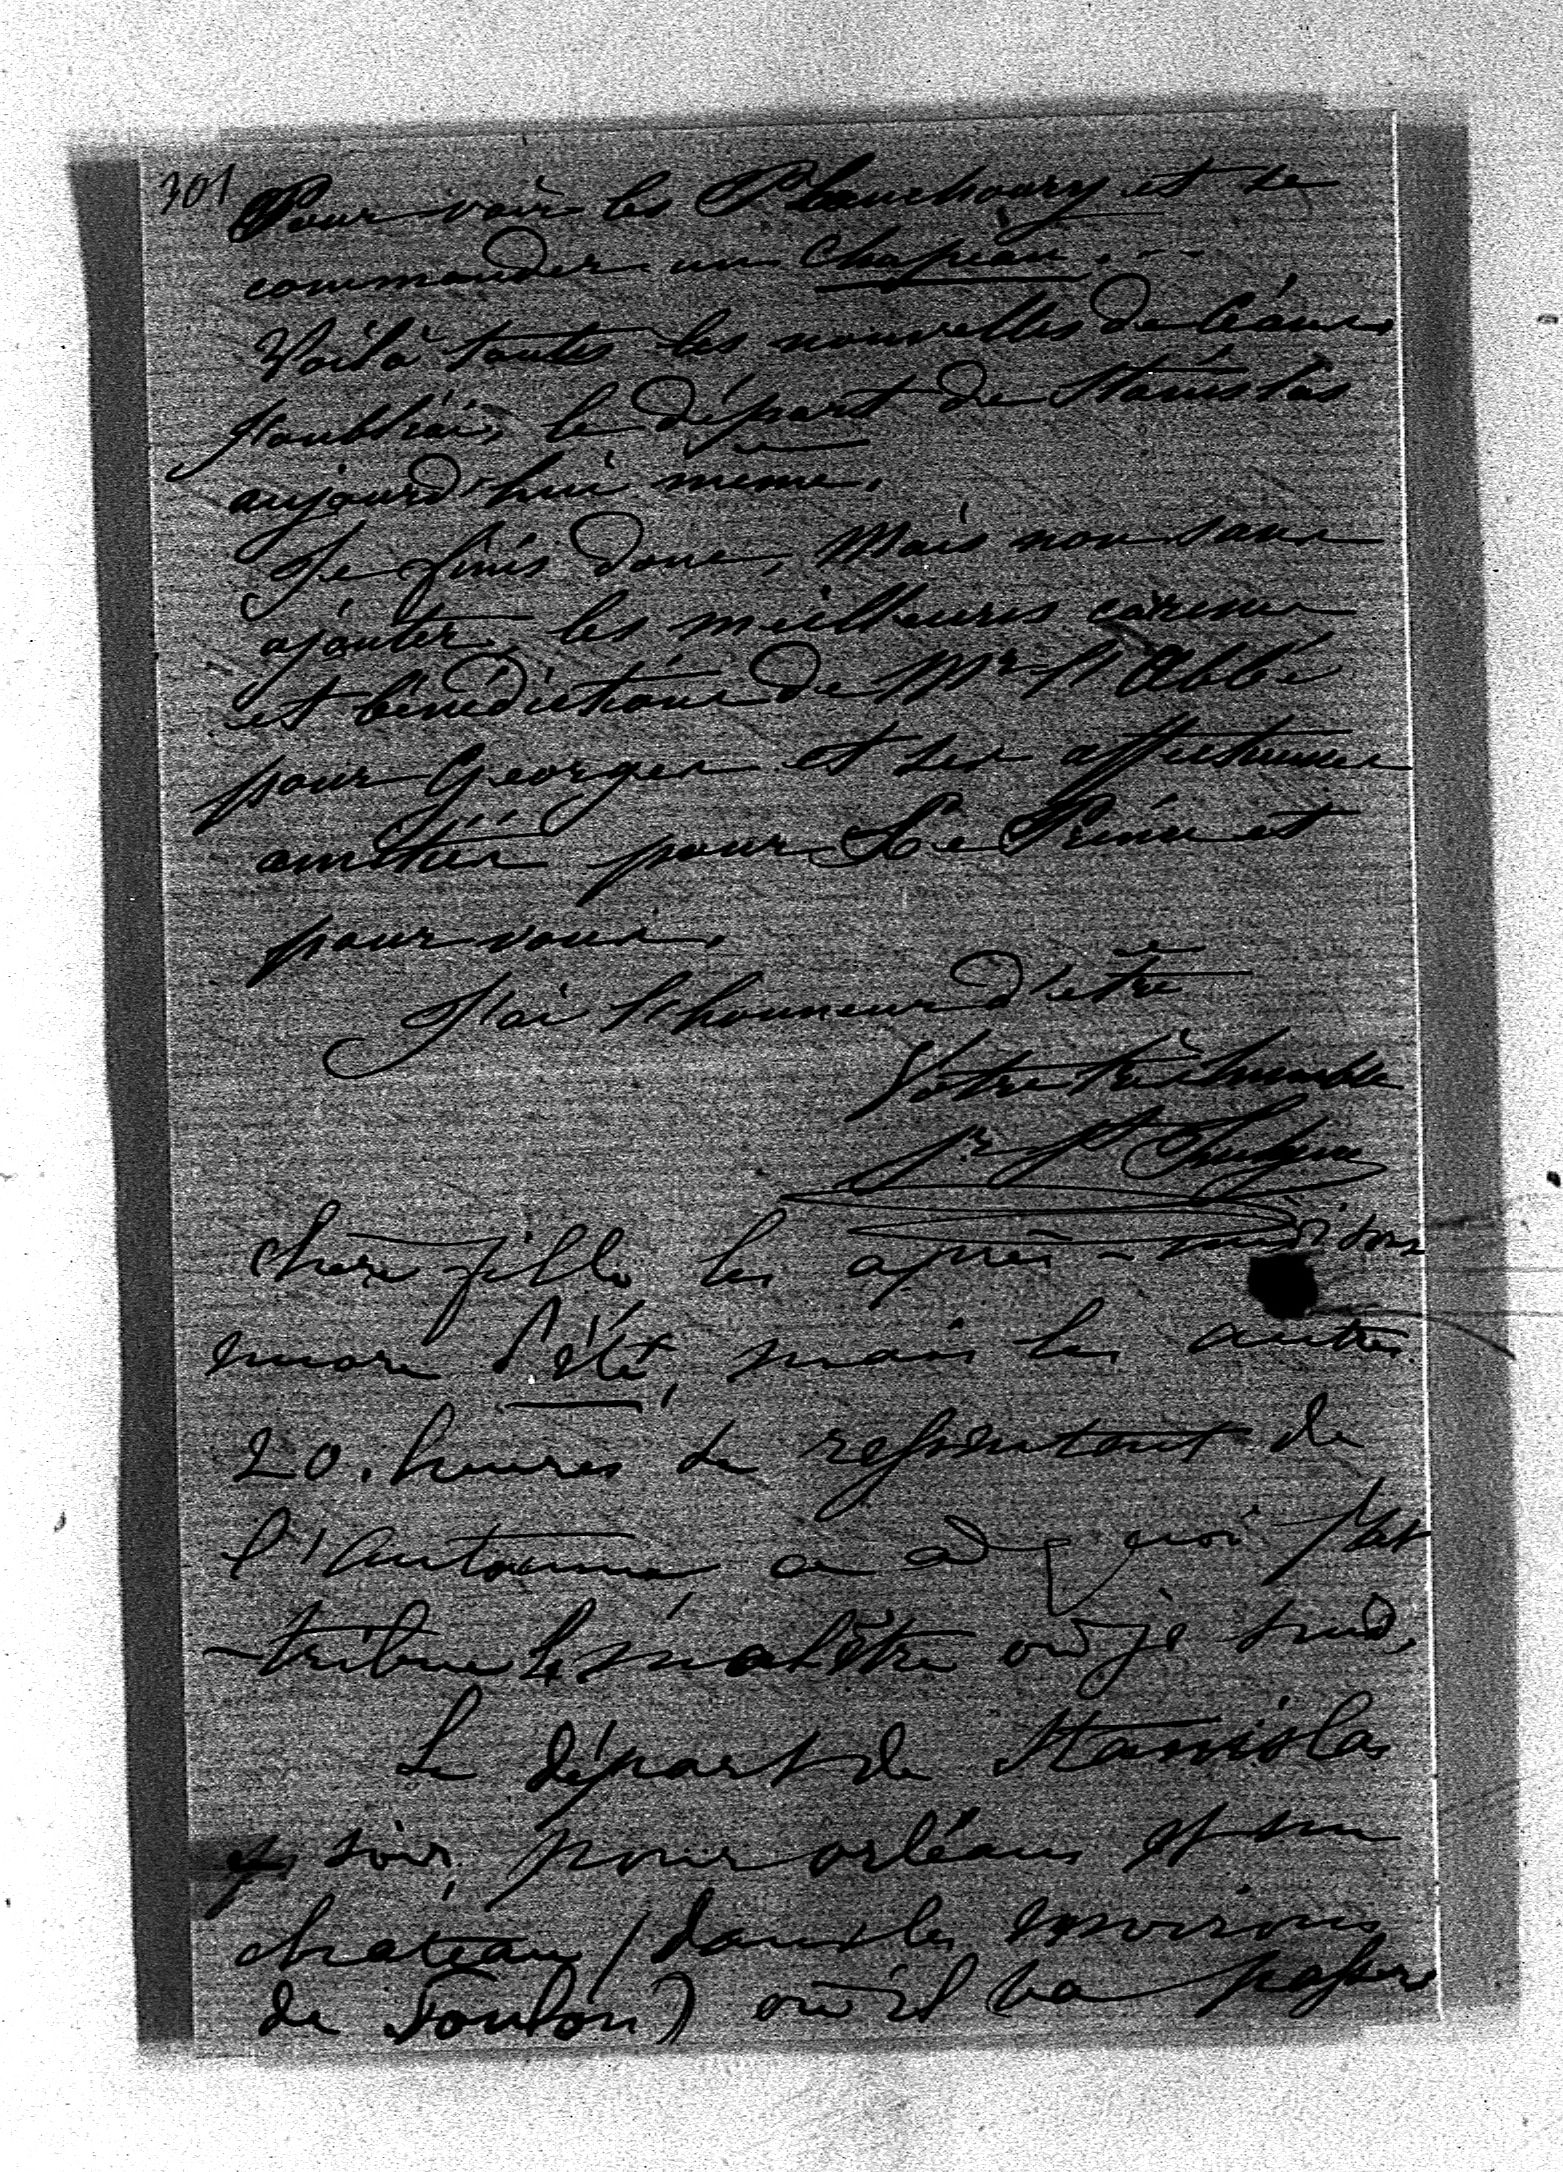 301
Pour voir les Plauchoury et se
commander un chapeau...
Voilà toutes les nouvelles de céans
J'oubliais, le départ de Stanislas
aujourd'hui même.
Je finis donc, Mais non sans
ajouter les meilleures caresses
et bénédictions de Mr l'Abbé
pour Georges et ses affectueuses
amitiés pour Le Prince et
pour vous.
J'ai l'honneur d'être
Votre très humble
chère fille les après-midi sont
encore d'été, mais les autres
20. heures se ressentent de
l'automne, à quoi j'at
-tribue le malêtre où je suis.
Le départ de Stanislas
ce soir, pour orléans et un
chateau (dans les environs
de Toulon) où il va passer